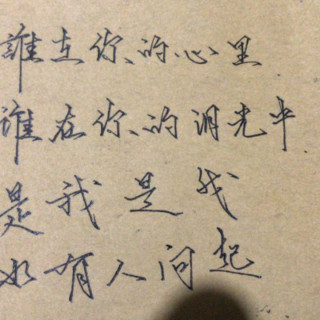 誰在你的心里
誰在你的泪光中
是我是我
如有人问起